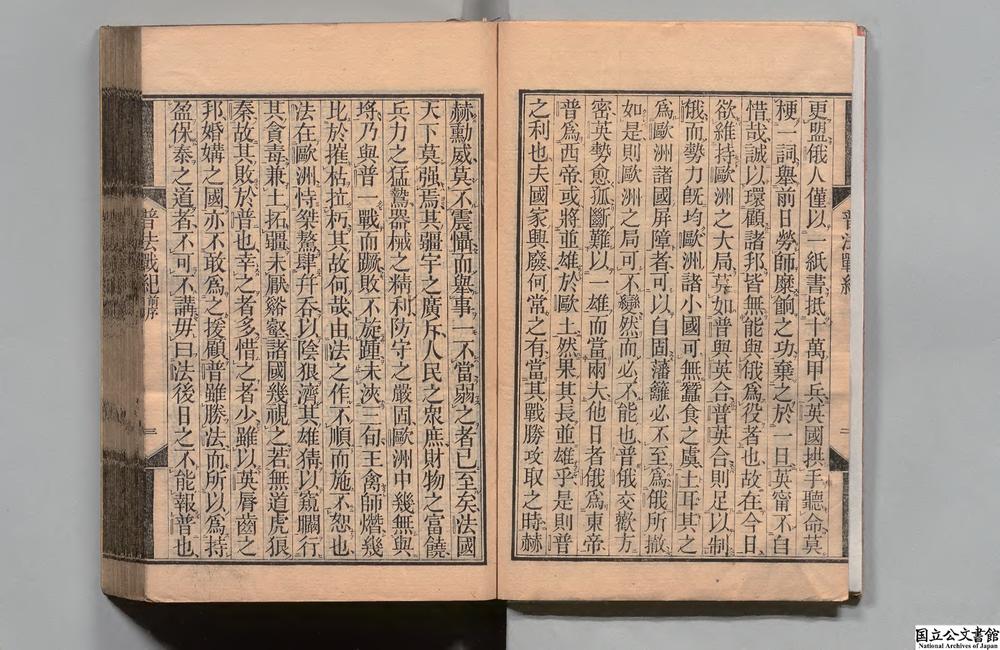 更盟俄人僅以一紙書抵十萬甲兵英國拱手聽命莫
梗一詞舉前日勞師糜餉之功棄之於一旦英甯不自
惜哉誠以環顧諸邦皆無能與俄爲役者也故在今日
欲維持歐洲之大局莫如普與英合普英合則足以制
俄而勢力旣均歐洲諸小國可無蠶食之虞土耳其之
爲歐洲諸國屏障者可以自固藩籬必不至爲俄所撤
如是則歐洲之局可不變然而必不能也普俄交歡方
密英勢愈孤斷難以一雄而當兩大他日者俄爲東帝
普爲西帝或將並雄於歐土然果其長並雄乎是則普
之利也夫國家興廢何常之有當其戰勝攻取之時赫
普法戰紀
赫勳威莫不震懾而舉事一不當弱之者已至矣法國
天下莫强焉其疆宇之廣斥人民之衆庶財物之富饒
兵力之猛鷙器械之精利防守之嚴固歐洲中幾無與
埒乃與普一戰而蹶敗不旋踵未浹三旬王禽師熸幾
比於摧枯拉朽其故何哉由法之作不順而施不恕也
法在歐洲恃桀驁肆幷吞以陰狠濟其雄猜以窺覵行
其貪毒兼土拓疆未厭谿壑諸國幾視之若無道虎狼
秦故其敗於普也幸之者多惜之者少雖以英脣齒之
邦婚媾之國亦不敢爲之援顧普雖勝法而所以爲持
盈保泰之道者不可不講毋曰法後日之不能報普也
普法戰紀 前序 二
国立公文書館
National Archives of Japan